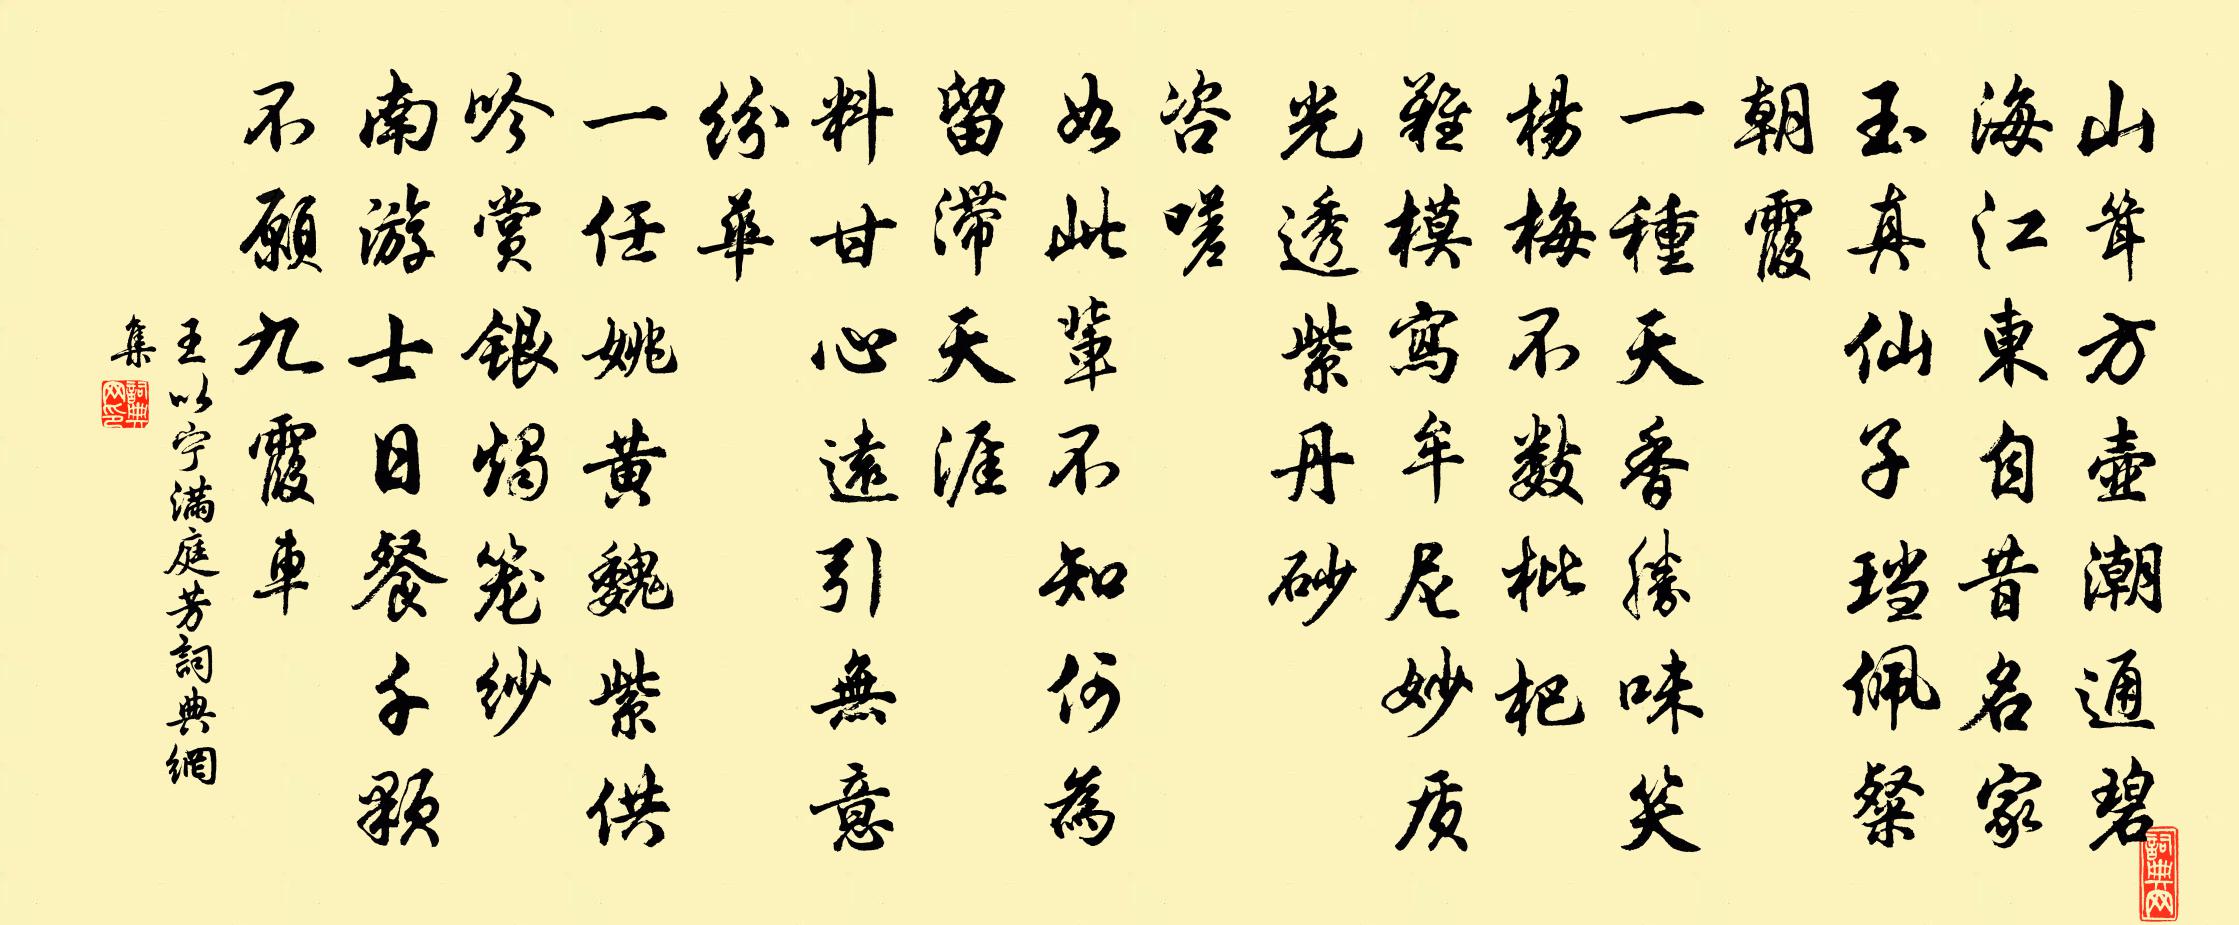 山耸方壺潮通碧
海江東自昔名家
玉真仙子珰佩粲
朝霞
一種天香勝味笑
楊梅不數枇杷
難模寫牟尼妙质
光透紫丹砂
咨嗟
如此輩不知何為
留滞天涯
料甘心遠引無意
纷華
一任姚黄魏紫供
吟赏銀燭笼纱
南游士日餐千顆
不願九霞車
王以宁满庭芳詞典網
集
詞典网印
詞典网